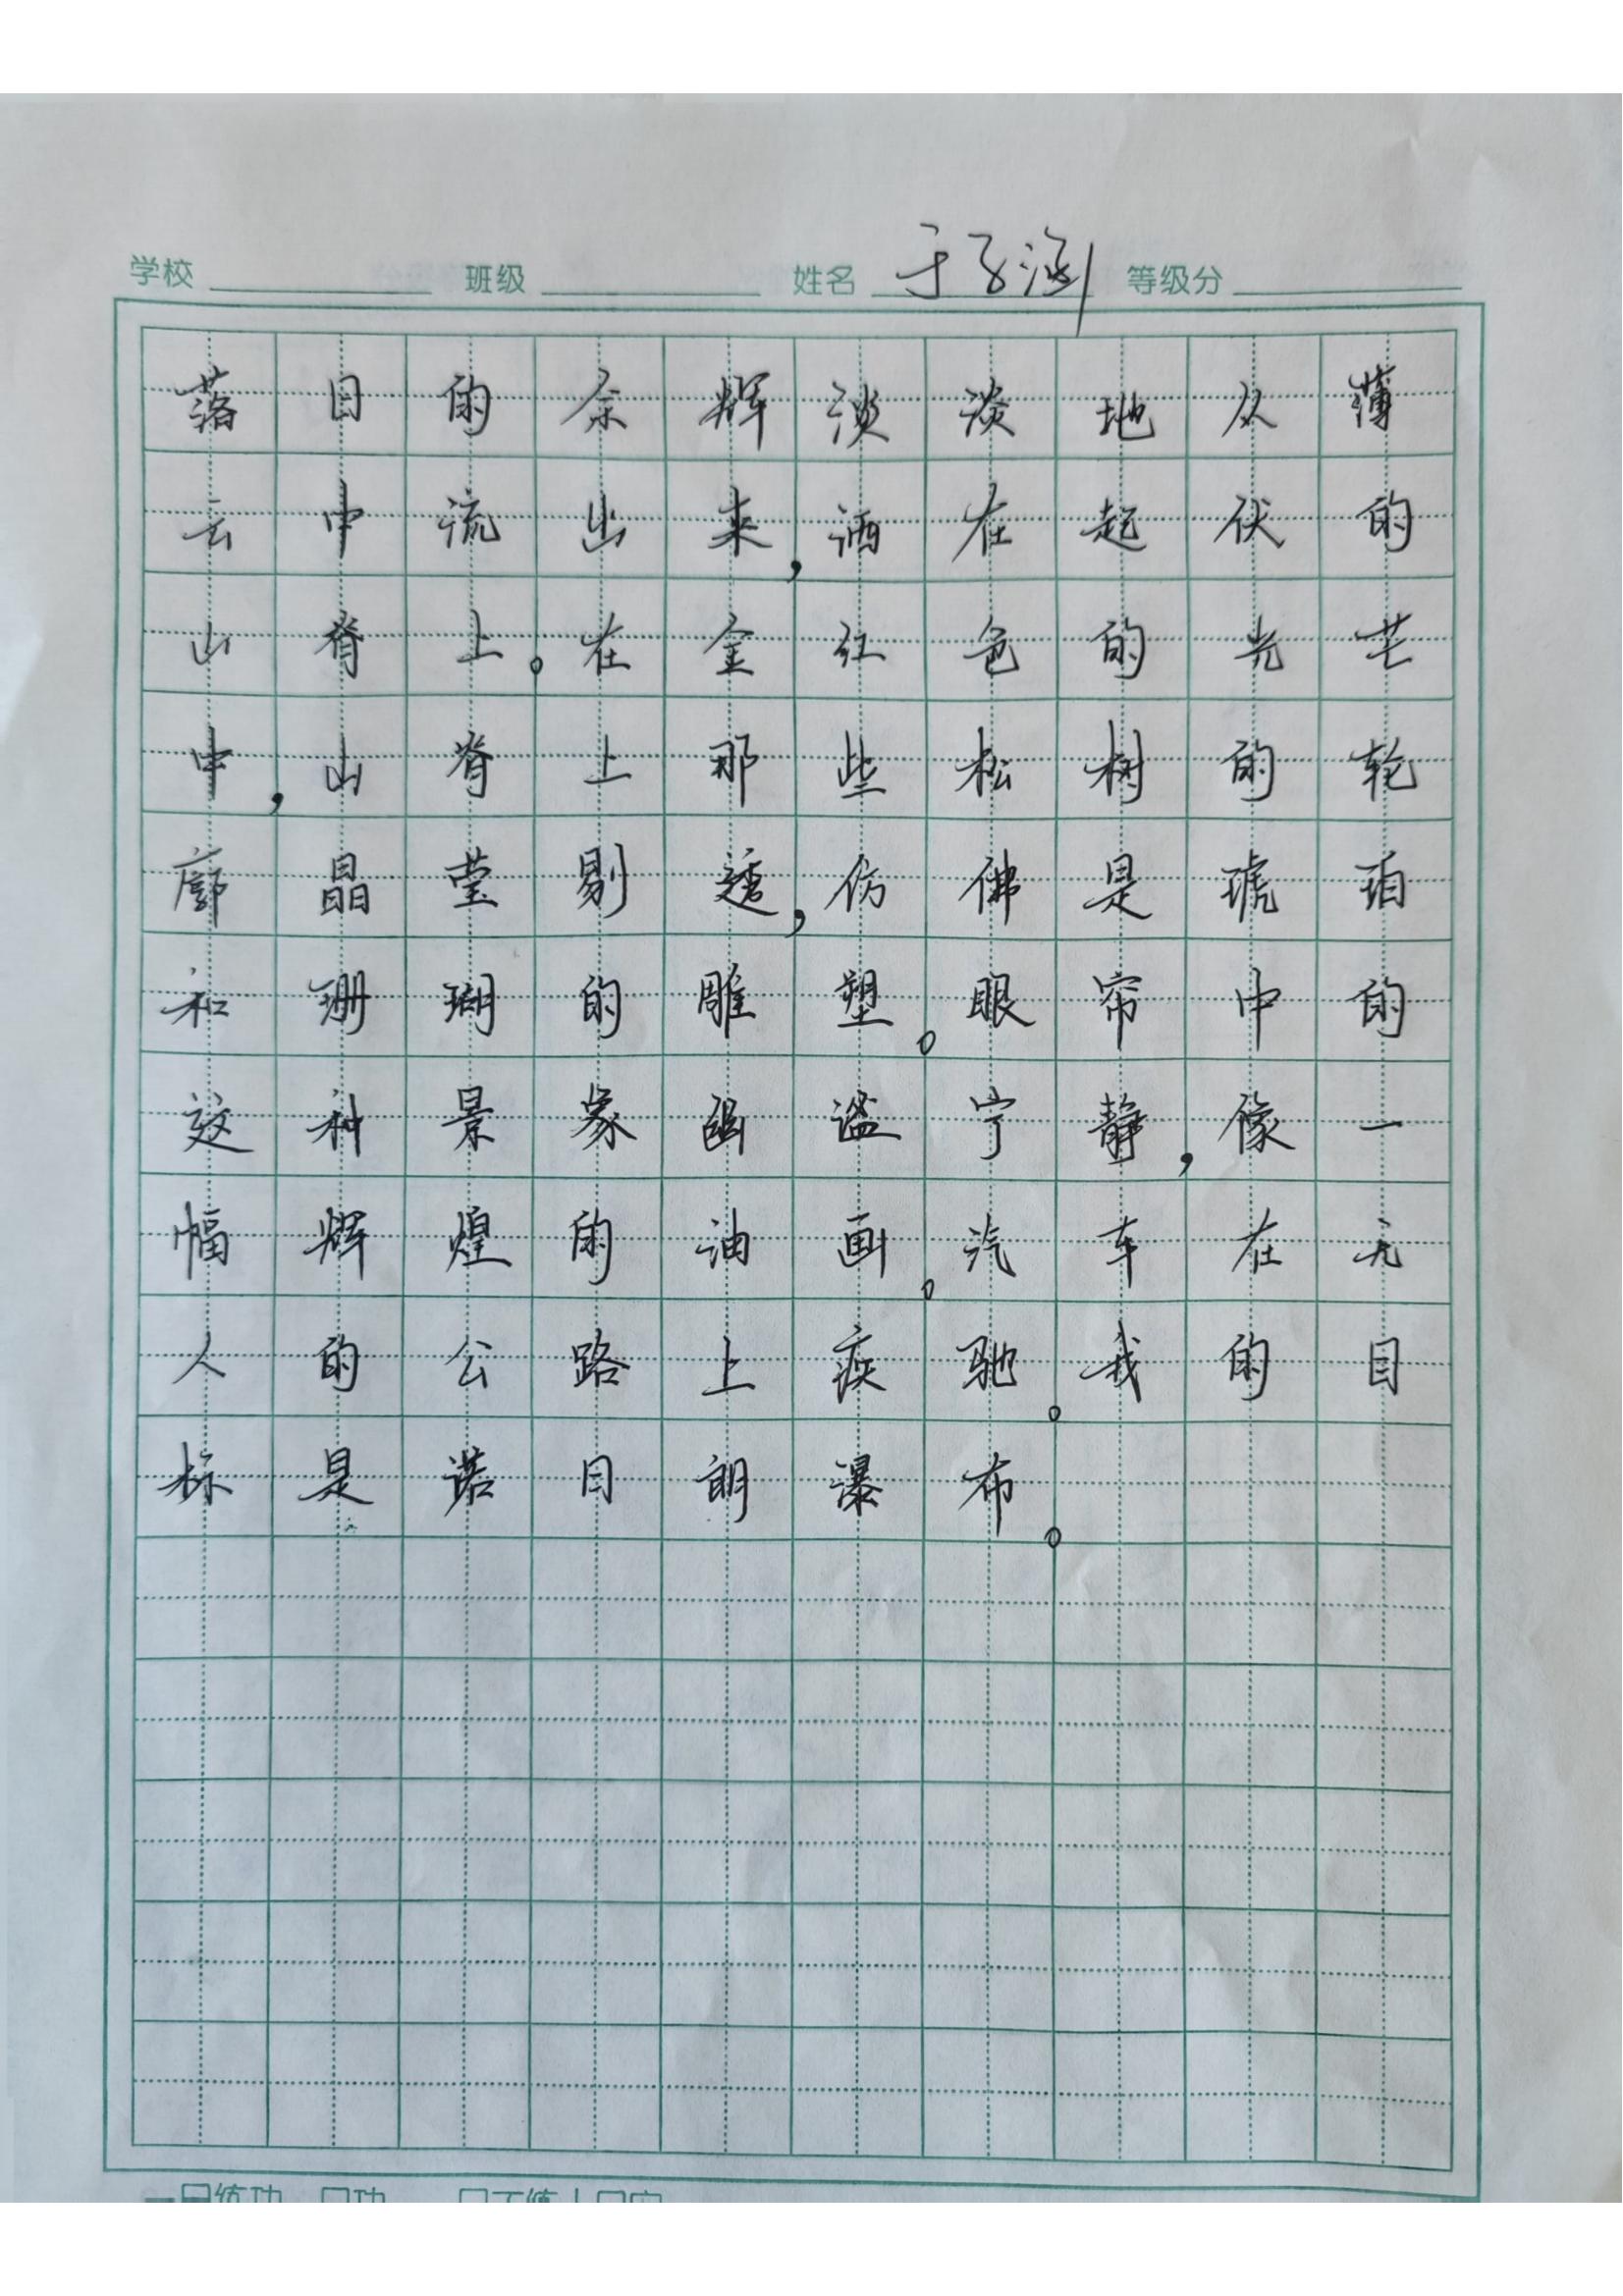 学校 班级 姓名 于子涵 等级分
落日的余辉淡淡地从薄
云中流出来，洒在起伏的
山脊上。在金红色的光芒
中，山脊上那些松树的轮
廓晶莹剔透，仿佛是琥珀
和珊瑚的雕塑。眼帘中的
这种景象幽谧宁静，像一
幅辉煌的油画。汽车在无
人的公路上疾驰。我的目
标是诺日朗瀑布。